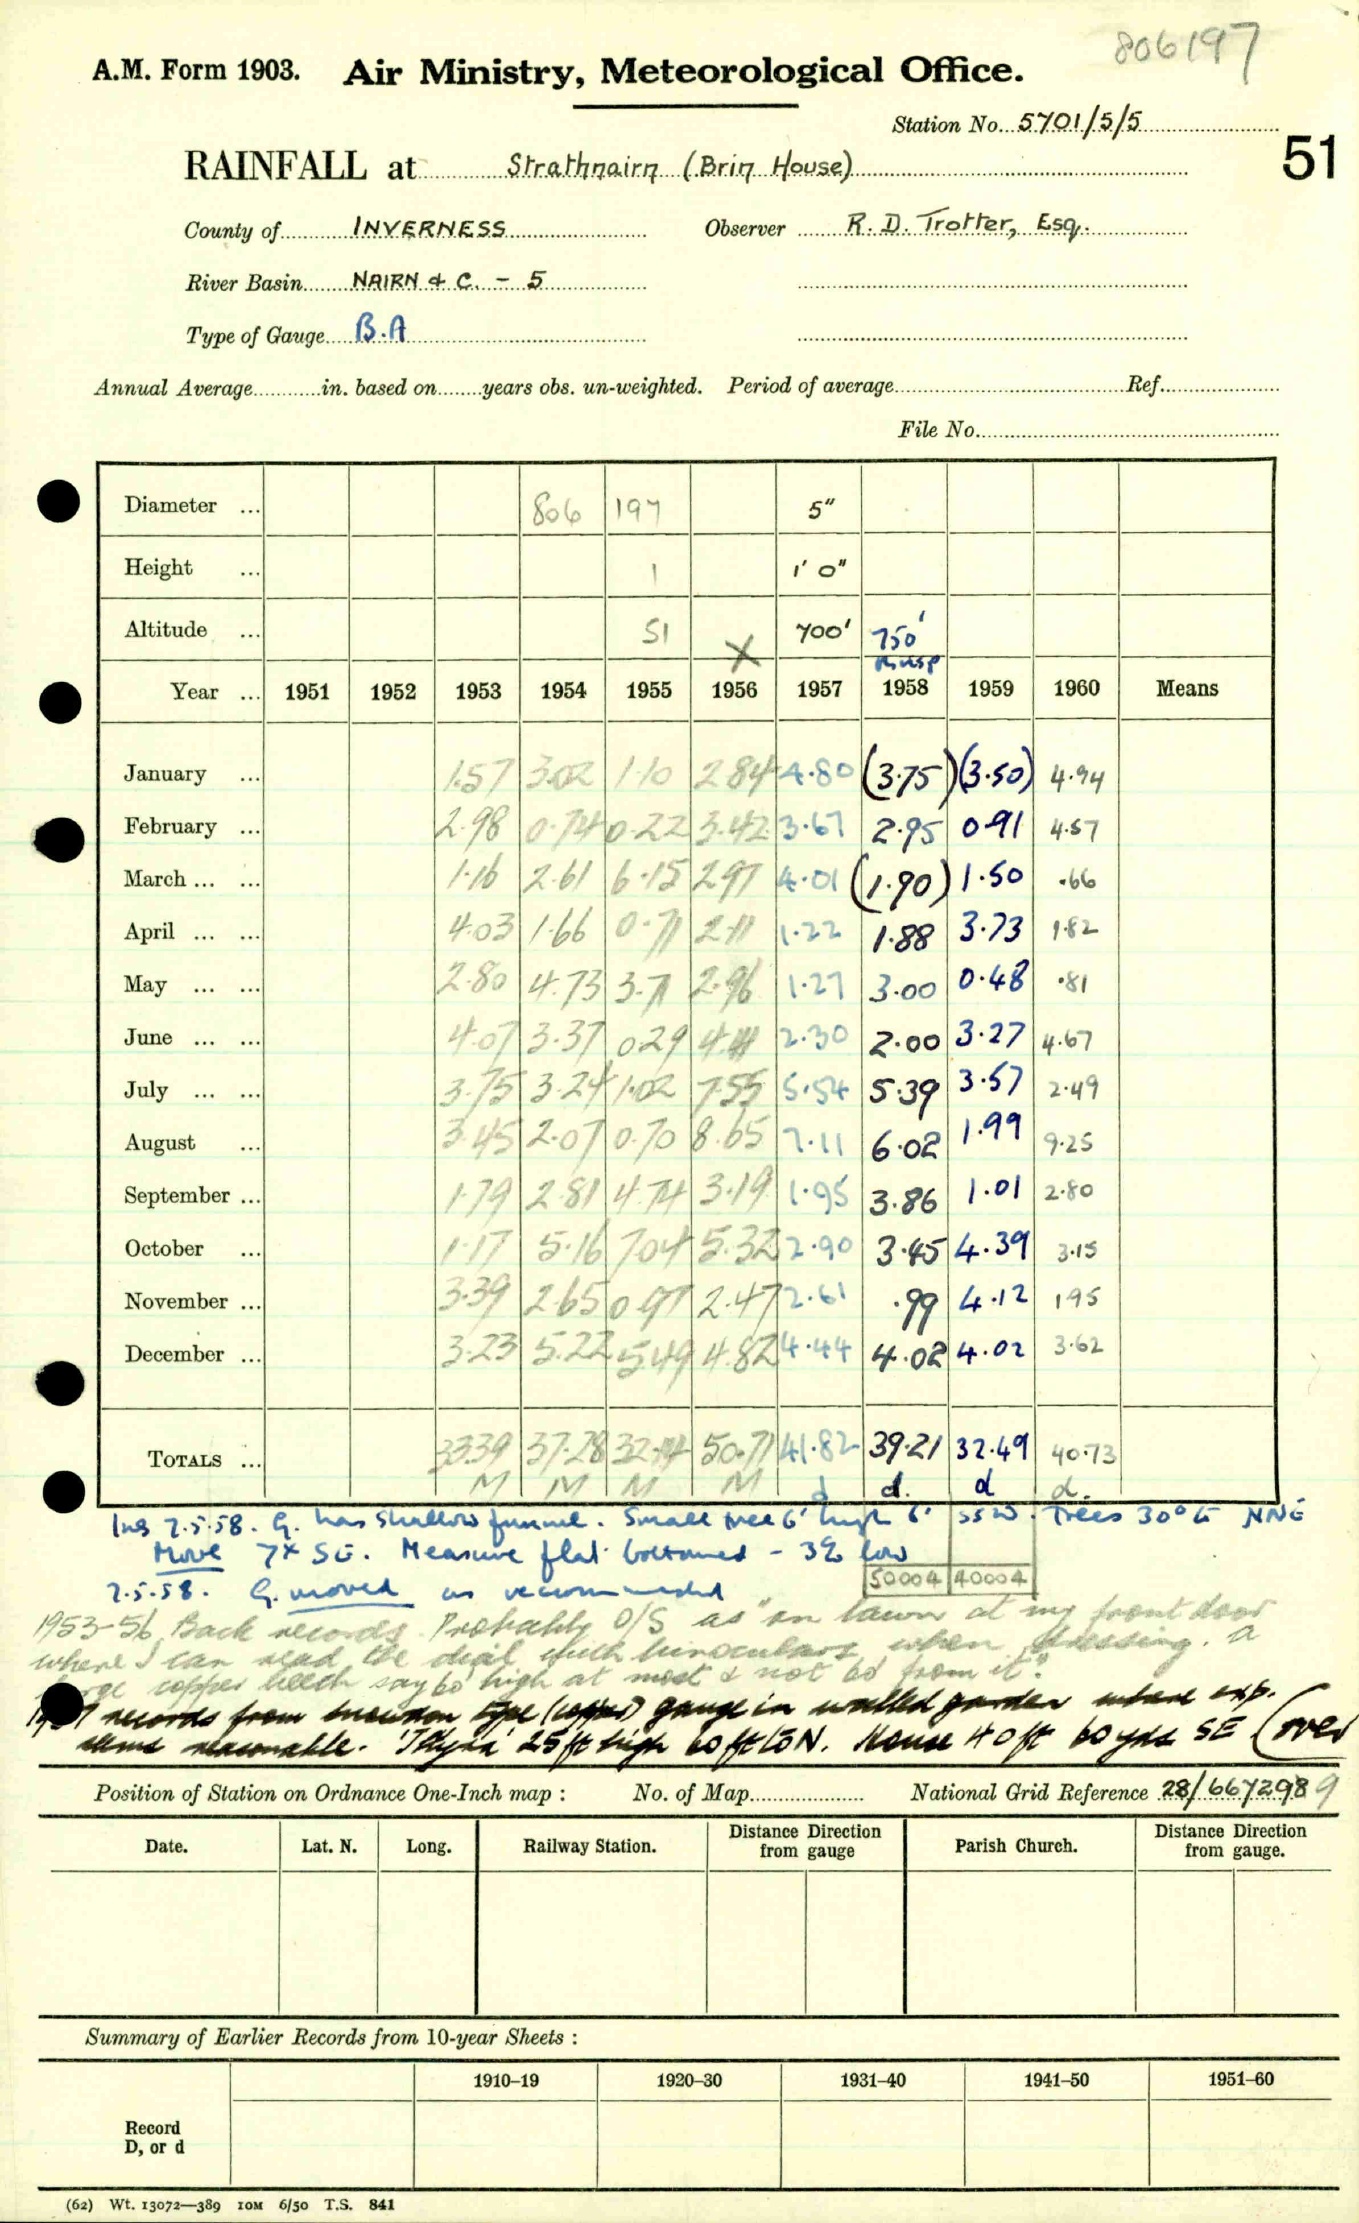 806197
A.M. Form 1903. Air Ministry, Meteorological Office.
Station No. 5701/5/5
51
RAINFALL at Strathnairn (Brin House)
County of INVERNESS Observer R. D. Trotter, Esq.
River Basin NAIRN & C. - 5
Type of Gauge B.A
Annual Average in. based on years obs. un-weighted. Period of average Ref.
File No.
Diameter ... 806 197 5"
Height ... 1 1' 0"
Altitude ... 51 X 700' 750'
Year ... 1951 1952 1953 1954 1955 1956 1957 1958 1959 1960 Means
January ... 1.57 3.02 1.10 2.84 4.80 (3.75) (3.50) 4.94
February ... 2.98 0.74 0.22 3.42 3.67 2.95 0.91 4.57
March ... ... 1.16 2.61 6.15 2.97 4.01 (1.90) 1.50 .66
April ... ... 4.03 1.66 0.71 2.11 1.22 1.88 3.73 1.82
May ... ... 2.80 4.73 3.71 2.96 1.27 3.00 0.48 .81
June ... ... 4.07 3.37 0.29 4.41 2.30 2.00 3.27 4.67
July ... ... 3.75 3.24 1.02 7.55 5.54 5.39 3.57 2.49
August ... 3.45 2.07 0.70 8.65 7.11 6.02 1.99 9.25
September ... 1.79 2.81 4.74 3.19 1.95 3.86 1.01 2.80
October ... 1.17 5.16 7.04 5.32 2.90 3.45 4.39 3.15
November ... 3.39 2.65 0.97 2.47 2.61 .99 4.12 1.95
December ... 3.23 5.22 5.49 4.82 4.44 4.02 4.02 3.62
TOTALS ... 33.39 37.28 32.14 50.71 41.82 39.21 32.49 40.73
M M M M d d. d d.
Ins 7.5.58. G. has shallow funnel. Small tree 6' high 6' SSW. Trees 30° NNE
Move 7x SE. Measure flat bottomed - 3% low
50004 40004
7.5.58. G. moved as recommended
1953-56 Back records. Probably O/S as "on lawn at my front door
where I can read the dial with binoculars when dressing. a
large copper beech say 60' high at most & not 60' from it".
1957 records from snowdon type (copper) gauge in walled garden where exp.
seems reasonable. 'Thuja' 25ft high 60ft to N. House 40ft 60yds SE (over
Position of Station on Ordnance One-Inch map : No. of Map National Grid Reference 28/667298 9
Date. Lat. N. Long. Railway Station. Distance Direction from gauge Parish Church. Distance Direction from gauge.
Summary of Earlier Records from 10-year Sheets :
1910–19 1920–30 1931–40 1941–50 1951–60
Record
D, or d
(62) Wt. 13072—389 10M 6/50 T.S. 841